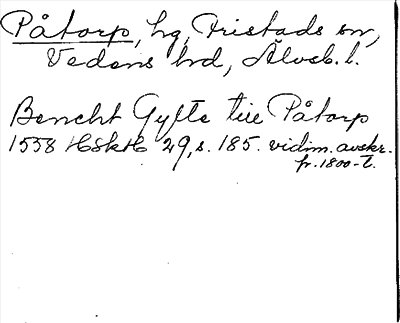 Påtorp, hg, Fristads sn,
Vedens hd, Älvsb. l.
Bencht Gylte tiil Påtorp
1538 HSkH 29, s. 185. vidim. avskr.
fr. 1800-t.